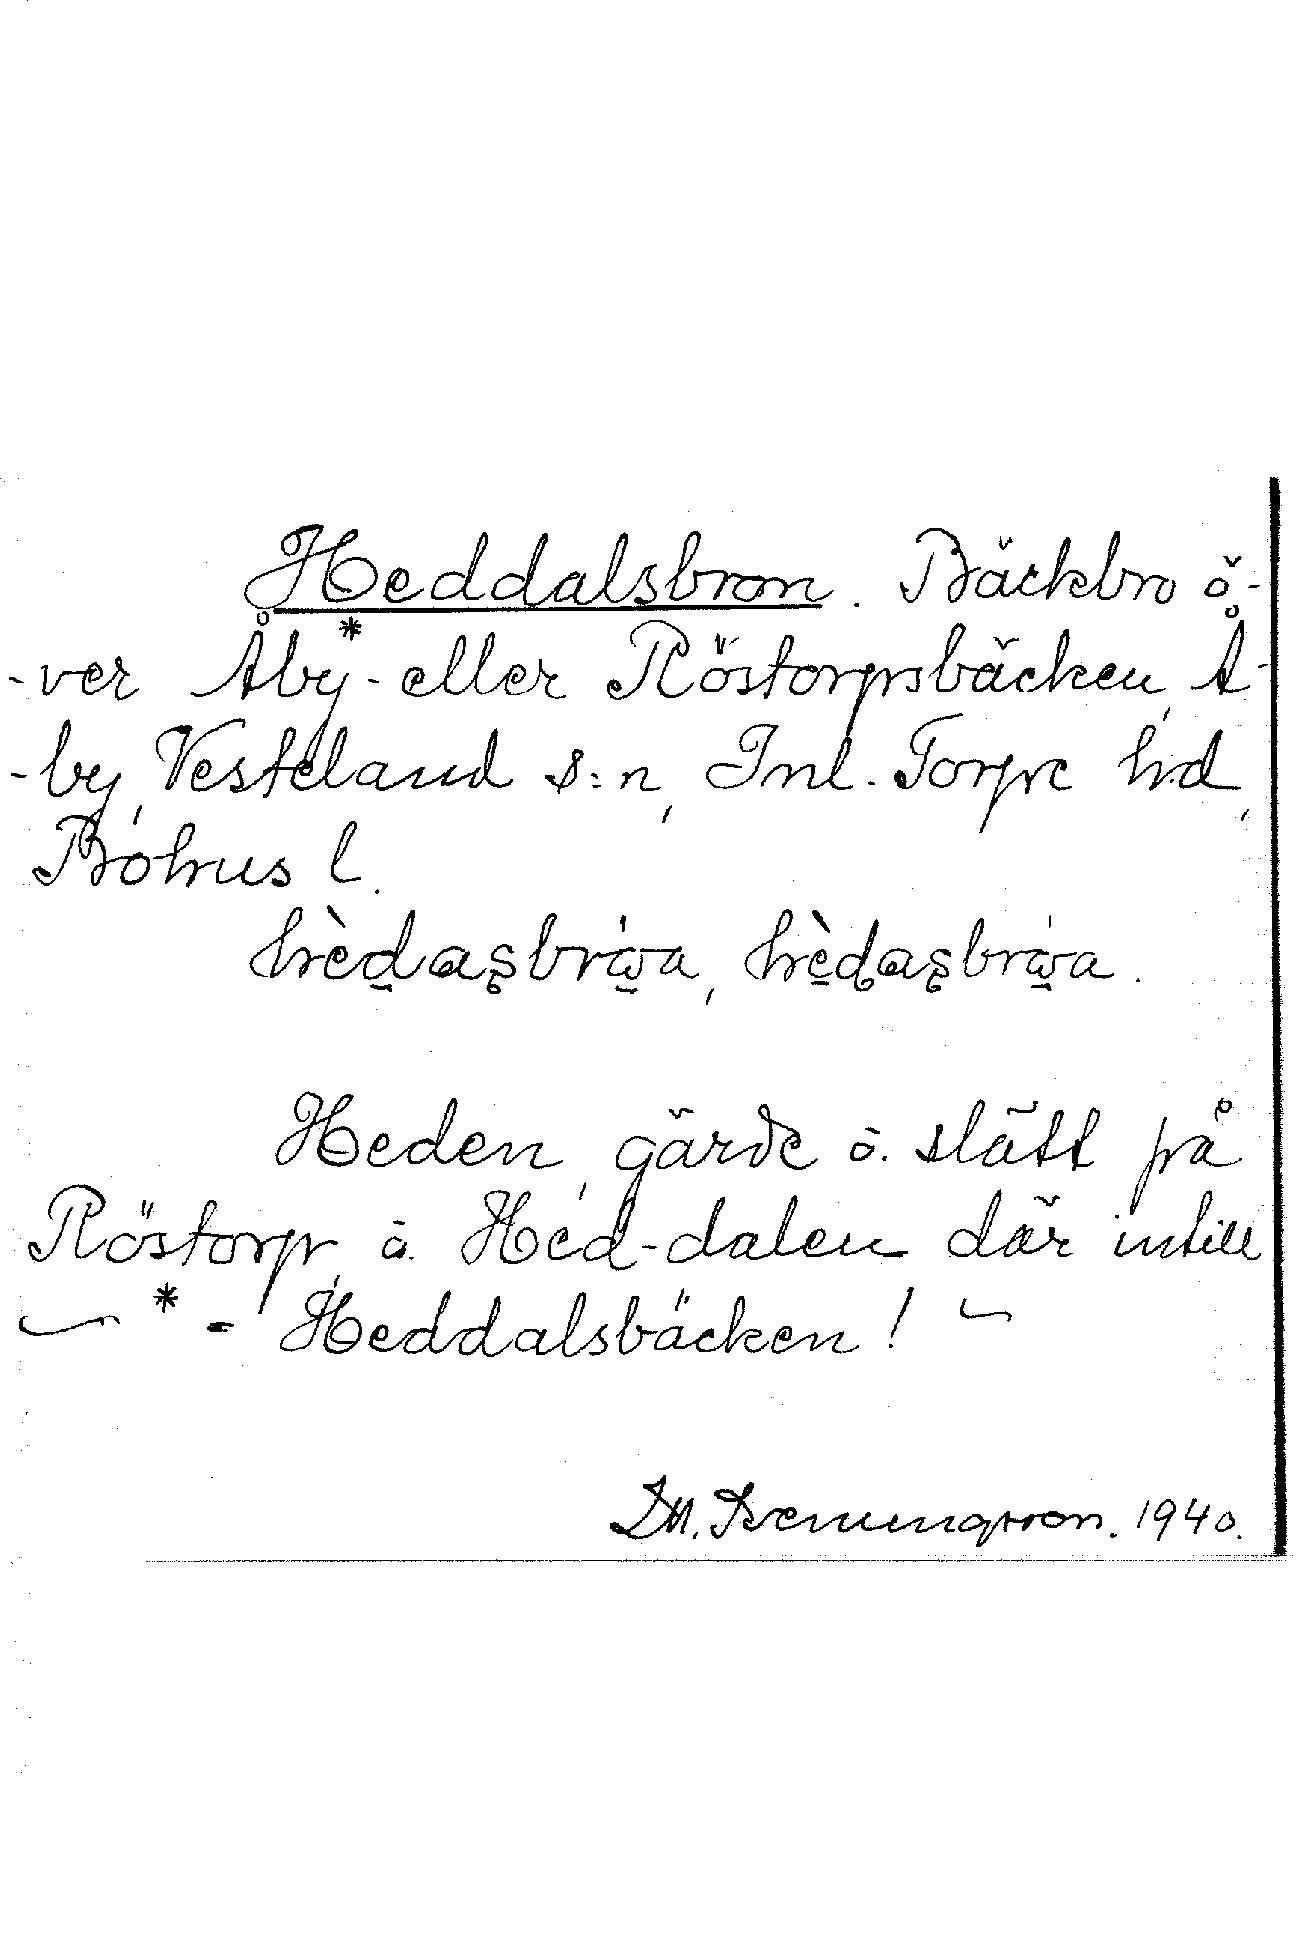 Heddalsbron. Bäckbro ö-
-ver Åby*- eller Röstorpsbäcken, Å-
-by, Vesteland s:n, Inl. Torpe hd,
Bohus l.
hèdasbrωa, hèdasbrωa.
Heden, gärde o. slätt på
Röstorp, o. Hed-dalen där intill
* - Heddalsbäcken!
1940.